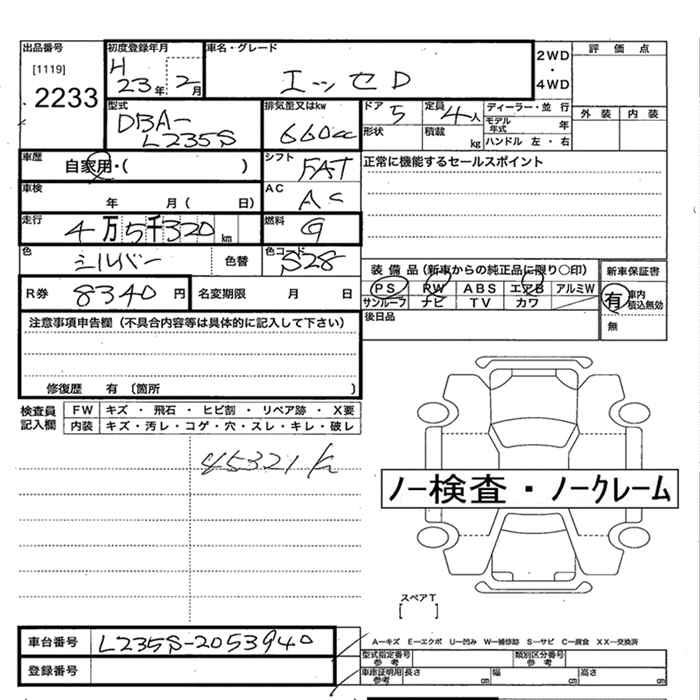 出品番号 [1119] 2233
初度登録年月 H 23年 2月
車名・グレード エッセD
2WD・4WD
評価点
外装 内装
型式 DBA-L235S
排気量又はkw 660cc
ドア 5 定員 4人
形状 積載 kg
ディーラー・並行
モデル年式 年
ハンドル 左・右
車歴 自家用・( )
シフト FAT
正常に機能するセールスポイント
車検 年 月( 日)
AC AC
走行 4万5千320km
燃料 G
色 シルバー 色替
色コード S28
装備品(新車からの純正品に限り○印)
PS PW ABS エアB アルミW
サンルーフ ナビ TV カワ
新車保証書
有 車内積込無効
無
R券 8340円 名変期限 月 日
後日品
注意事項申告欄(不具合内容等は具体的に記入して下さい)
修復歴 有〔箇所 〕
検査員記入欄
FW キズ・飛石・ヒビ割・リペア跡・X要
内装 キズ・汚レ・コゲ・穴・スレ・キレ・破レ
45321k
ノー検査・ノークレーム
スペアT
[ ]
車台番号 L235S-2053940
登録番号
A-キズ E-エクボ U-凹み W-補修跡 S-サビ C-腐食 XX-交換済
型式指定番号 参考 類別区分番号 参考
車庫証明用 参考 長さ cm 幅 cm 高さ cm